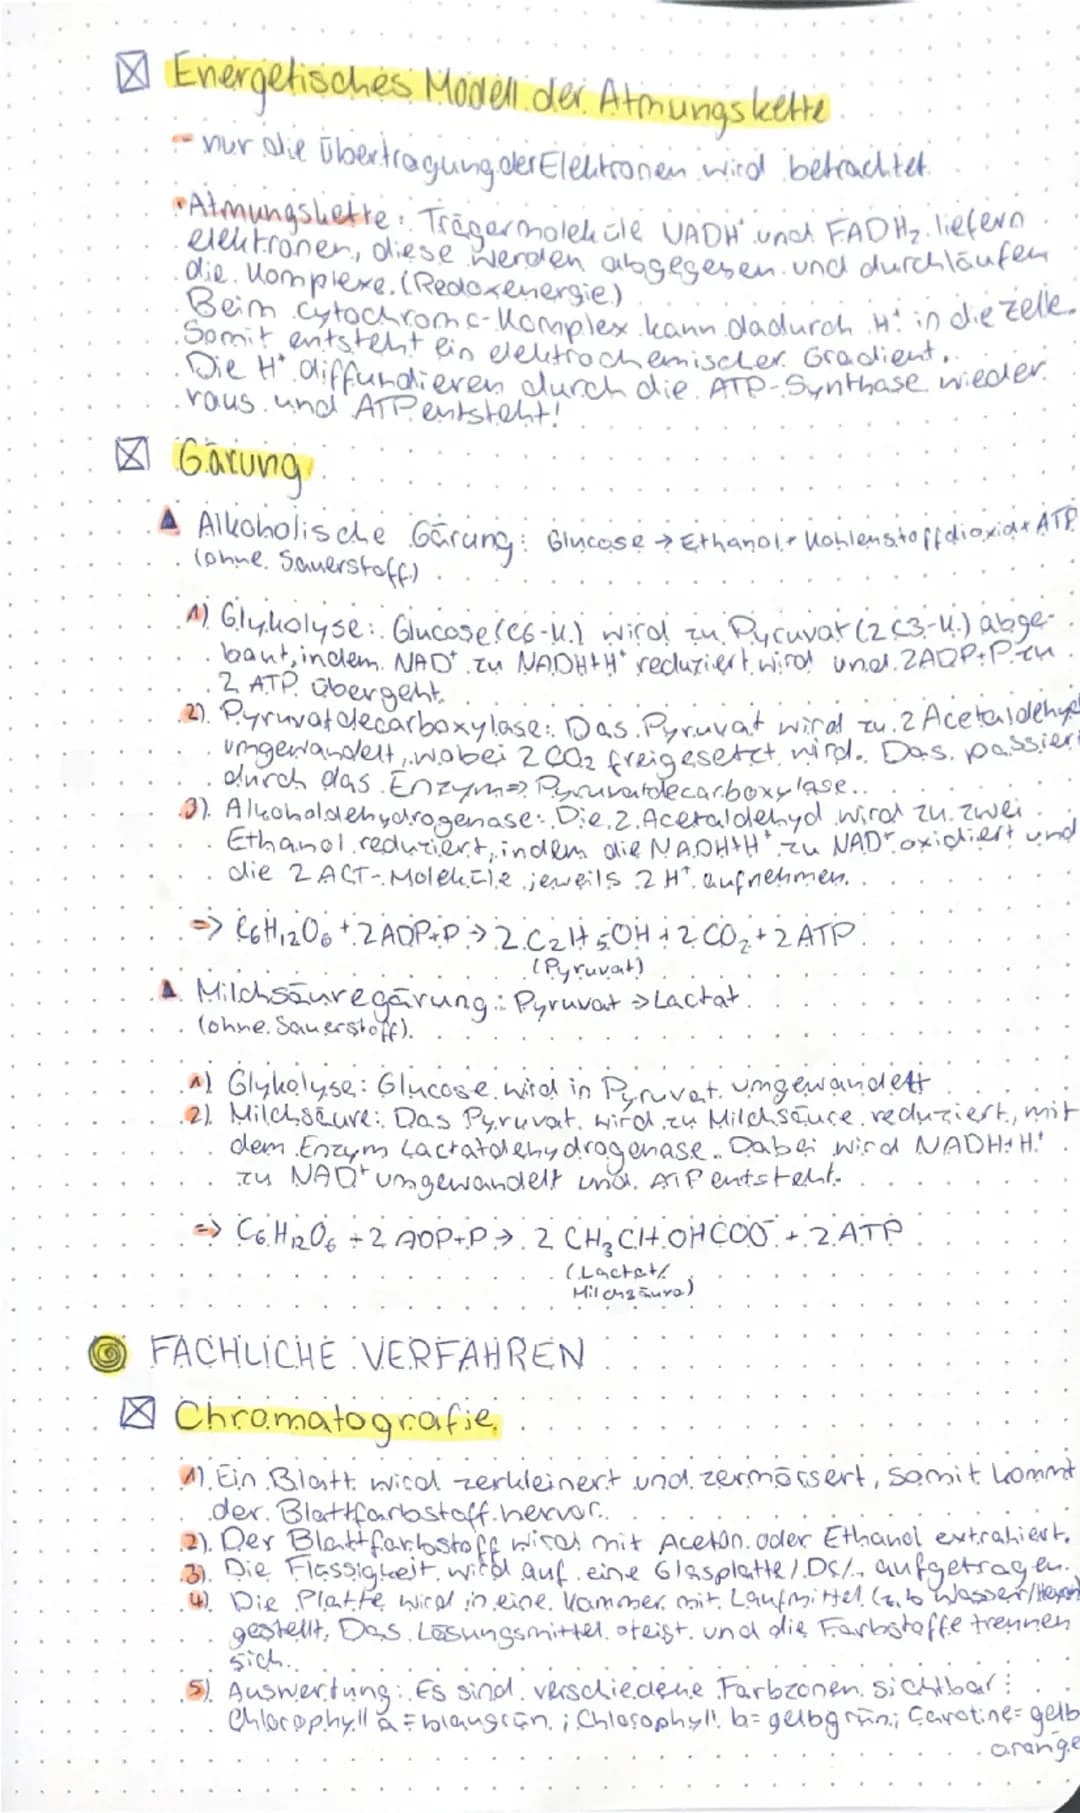 Energetisches Modell der Atmungskette
- nur die Übertragung der Elektronen wird betrachtet.
• Atmungskette: Trägermoleküle NADH⁺ und FADH₂ liefern
elektronen, diese werden abgegeben und durchlaufen
die Komplexe. (Redoxenergie)
Beim Cytochrom c-Komplex kann dadurch H⁺ in die Zelle.
Somit entsteht ein elektrochemischer Gradient.
Die H⁺ diffundieren durch die ATP-Synthase wieder
raus und ATP entsteht!
Gärung
Alkoholische Gärung: Glucose → Ethanol + Kohlenstoffdioxid + ATP
(ohne Sauerstoff)
1) Glykolyse: Glucose (C6-K.) wird zu Pyruvat (2 C3-K.) abge-
baut, indem NAD⁺ zu NADH+H⁺ reduziert wird und 2ADP+P zu
2 ATP übergeht.
2) Pyruvatdecarboxylase: Das Pyruvat wird zu 2 Acetaldehyd
umgewandelt, wobei 2 CO₂ freigesetzt wird. Das passiert
durch das Enzym => Pyruvatdecarboxylase.
3) Alkoholdehydrogenase: Die 2 Acetaldehyd wird zu zwei
Ethanol reduziert, indem die NADH+H⁺ zu NAD⁺ oxidiert und
die 2 ACT-Moleküle jeweils 2 H⁺ aufnehmen.
=> C₆H₁₂O₆ + 2 ADP+P → 2 C₂H₅OH + 2 CO₂ + 2 ATP
(Pyruvat)
Milchsäuregärung: Pyruvat → Lactat
(ohne Sauerstoff)
1) Glykolyse: Glucose wird in Pyruvat umgewandelt
2) Milchsäure: Das Pyruvat wird zu Milchsäure reduziert, mit
dem Enzym Lactatdehydrogenase. Dabei wird NADH+H⁺
zu NAD⁺ umgewandelt und ATP entsteht.
=> C₆H₁₂O₆ + 2 ADP+P → 2 CH₃CHOHCOO⁻ + 2 ATP
(Lactat/
Milchsäure)
FACHLICHE VERFAHREN
Chromatografie
1) Ein Blatt wird zerkleinert und zermörsert, somit kommt
der Blattfarbstoff hervor.
2) Der Blattfarbstoff wird mit Aceton oder Ethanol extrahiert.
3) Die Flüssigkeit wird auf eine Glasplatte / DC/ aufgetragen.
4) Die Platte wird in eine Kammer mit Laufmittel (z.b Wasser/Hexan)
gestellt. Das Lösungsmittel steigt und die Farbstoffe trennen
sich.
5) Auswertung: Es sind verschiedene Farbzonen sichtbar:
Chlorophyll a = blaugrün; Chlorophyll b = gelbgrün; Carotine = gelb
orange